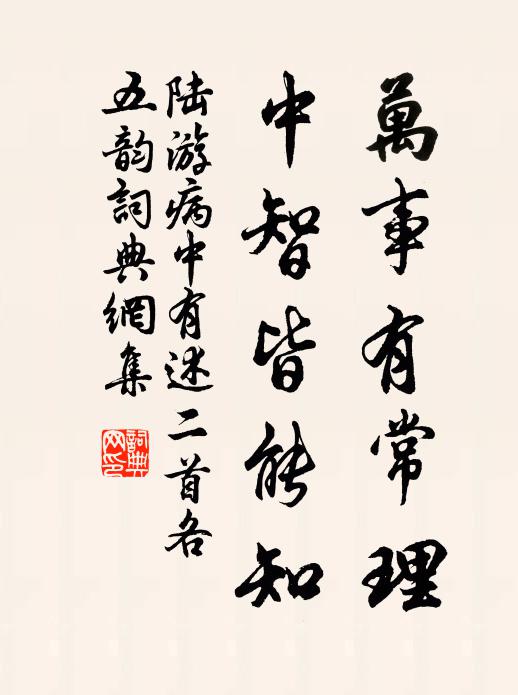 萬事有常理
中智皆能知
陸游病中有述二首各
五韵詞典網集
詞典
网印